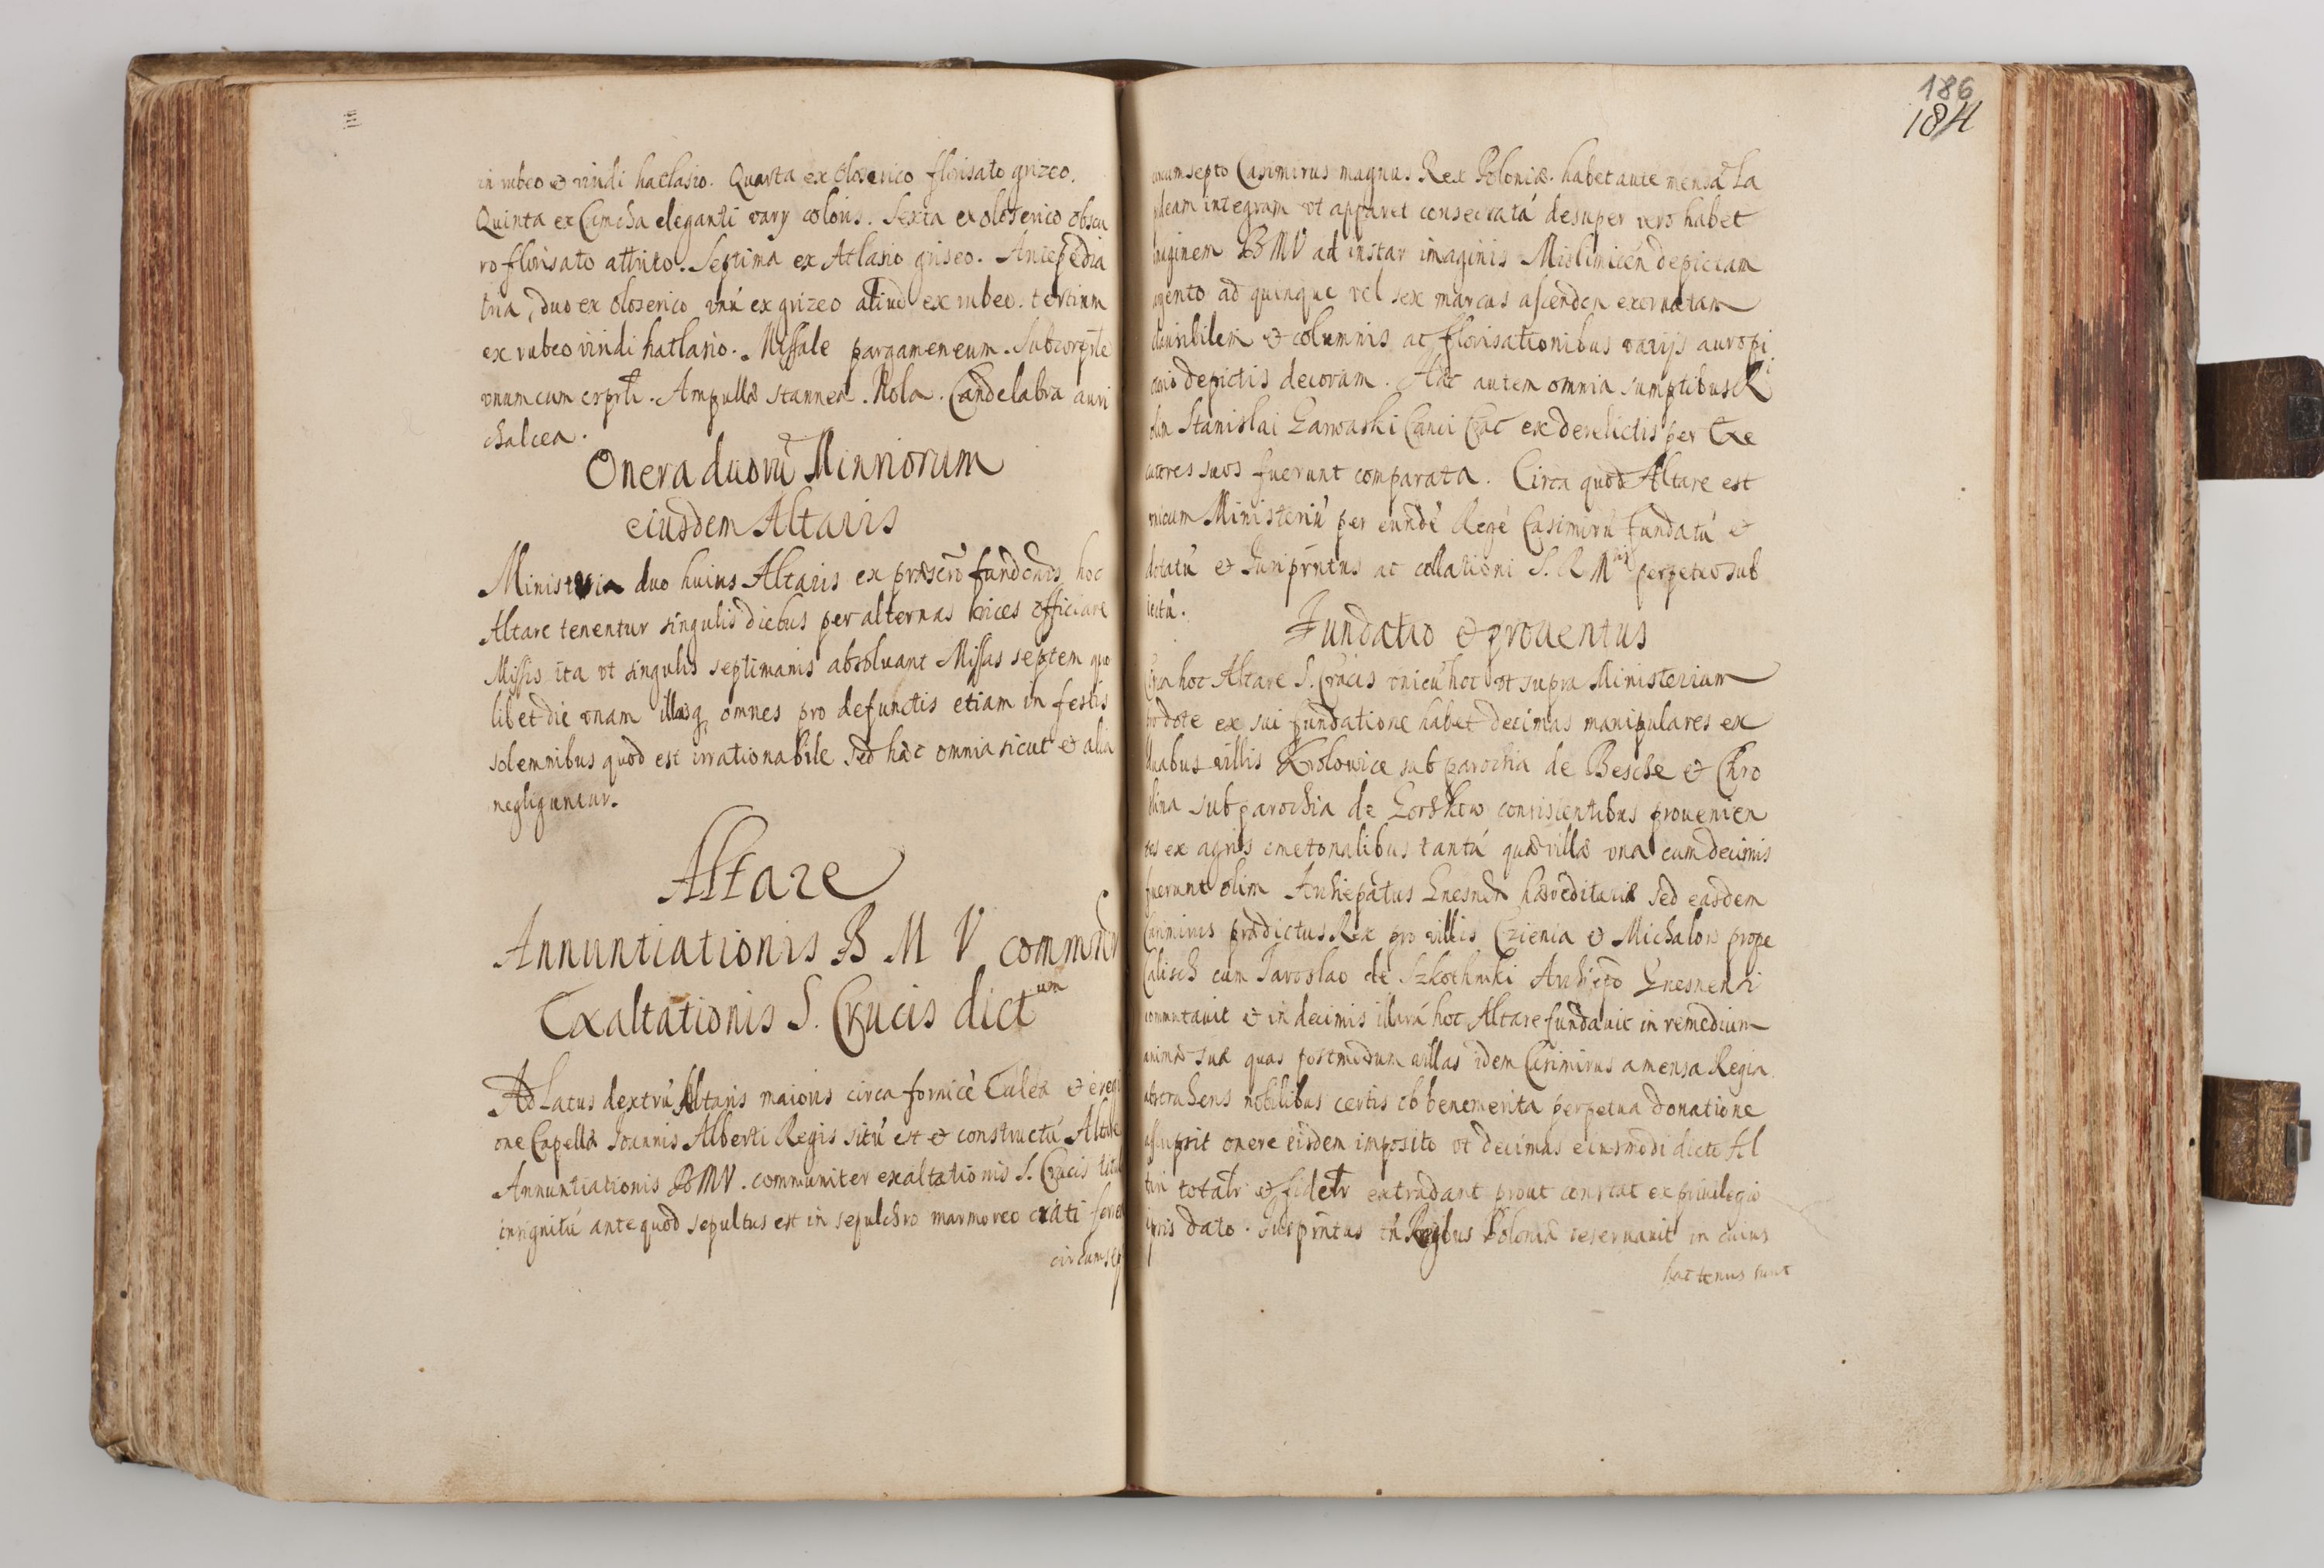 in rubeo & viridi hatlasio. Quarta ex oloserico florisato grizeo.
Quinta ex Camcha eleganti varij coloris. Sexta ex oloserico obscu
ro florisato attrito. Septima ex Atlasio griseo. Antepedia
tria, duo ex oloserico unú ex grizeo aliud ex rubeo. tertium
ex rubeo viridi hatlasio. Missale pargameneum.
unum cum Ampullæ stannea. Nola. Candelabra auri
chalcea.
Onera duorũ Minriorum
eiusdem Altaris
Ministeria duo huius Altaris ex hoc
Altare tenentur singulis diebus per alternas vices officiare
Missis ita vt singulis septimanis absoluant Missas septem quo
libet die vnam illasq omnes pro defunctis etiam in festis
solemnibus quod est irrationabile sed hæc omnia sicut & alia
negliguntur.
Altare
Annuntiationis B M V
Exaltationis S. Crucis dictum
Ad Latus dextrú Altaris maioris circa fornicé & e regi
one Capellæ Ioannis Alberti Regis sitú est & constructú Altare
Annuntiationis BMV. communiter exaltationis S. Crucis
insignitú ante quod sepultus est in sepulchro marmoreo
circumsep
186
184
circumsepto Casimirus magnus Rex Poloniæ. habet aute mensã La
pideam integram vt apparet consecratá desuper vero habet
Imaginem BMV ad instar imaginis depictam
argento ad quinque vel sex marcas ascenden exornatam
& columnis ac florisationibus varijs
depictis decoram. Hæc autem omnia sumptibus
olim Stanislai ex derelictis per Exe
cutores suos fuerunt comparata. Circa quod Altare est
vnicum Ministeriú per eundé Regé Casimirú fundatú &
dotatú & ac collationi S. R. perpetuo sub
iectú.
Fundatio & prouentus
Circa hoc Altare S. Crucis vnicú hoc vt supra Ministerium
pro dote ex sui fundatione habet decimas manipulares ex
duabus villis Krolowice sub parochia de Besche & Chro
sub parochia de consistentibus prouenien
tes ex agris cmetonalibus tantú quæ villæ vna cum decimis
fuerunt olim Gnesnen hæreditariæ sed easdem
Casimirus prædictus Rex pro villis & Michalow prope
Calisch cum Iaroslao de Gnesnensi
commutauit & in decimis illarú hoc Altare fundauit in remedium
animæ suæ quas postmodum villas idem Casimirus a mensa Regia
abstrahens nobilibus certis ob benemerita perpetua donatione
onere eisdem imposito vt decimas eiusmodi dicto Al
tari & extradant prout constat ex priuilegio
ipsis dato. Regibus Poloniæ reseruauit in cuius
hactenus sunt